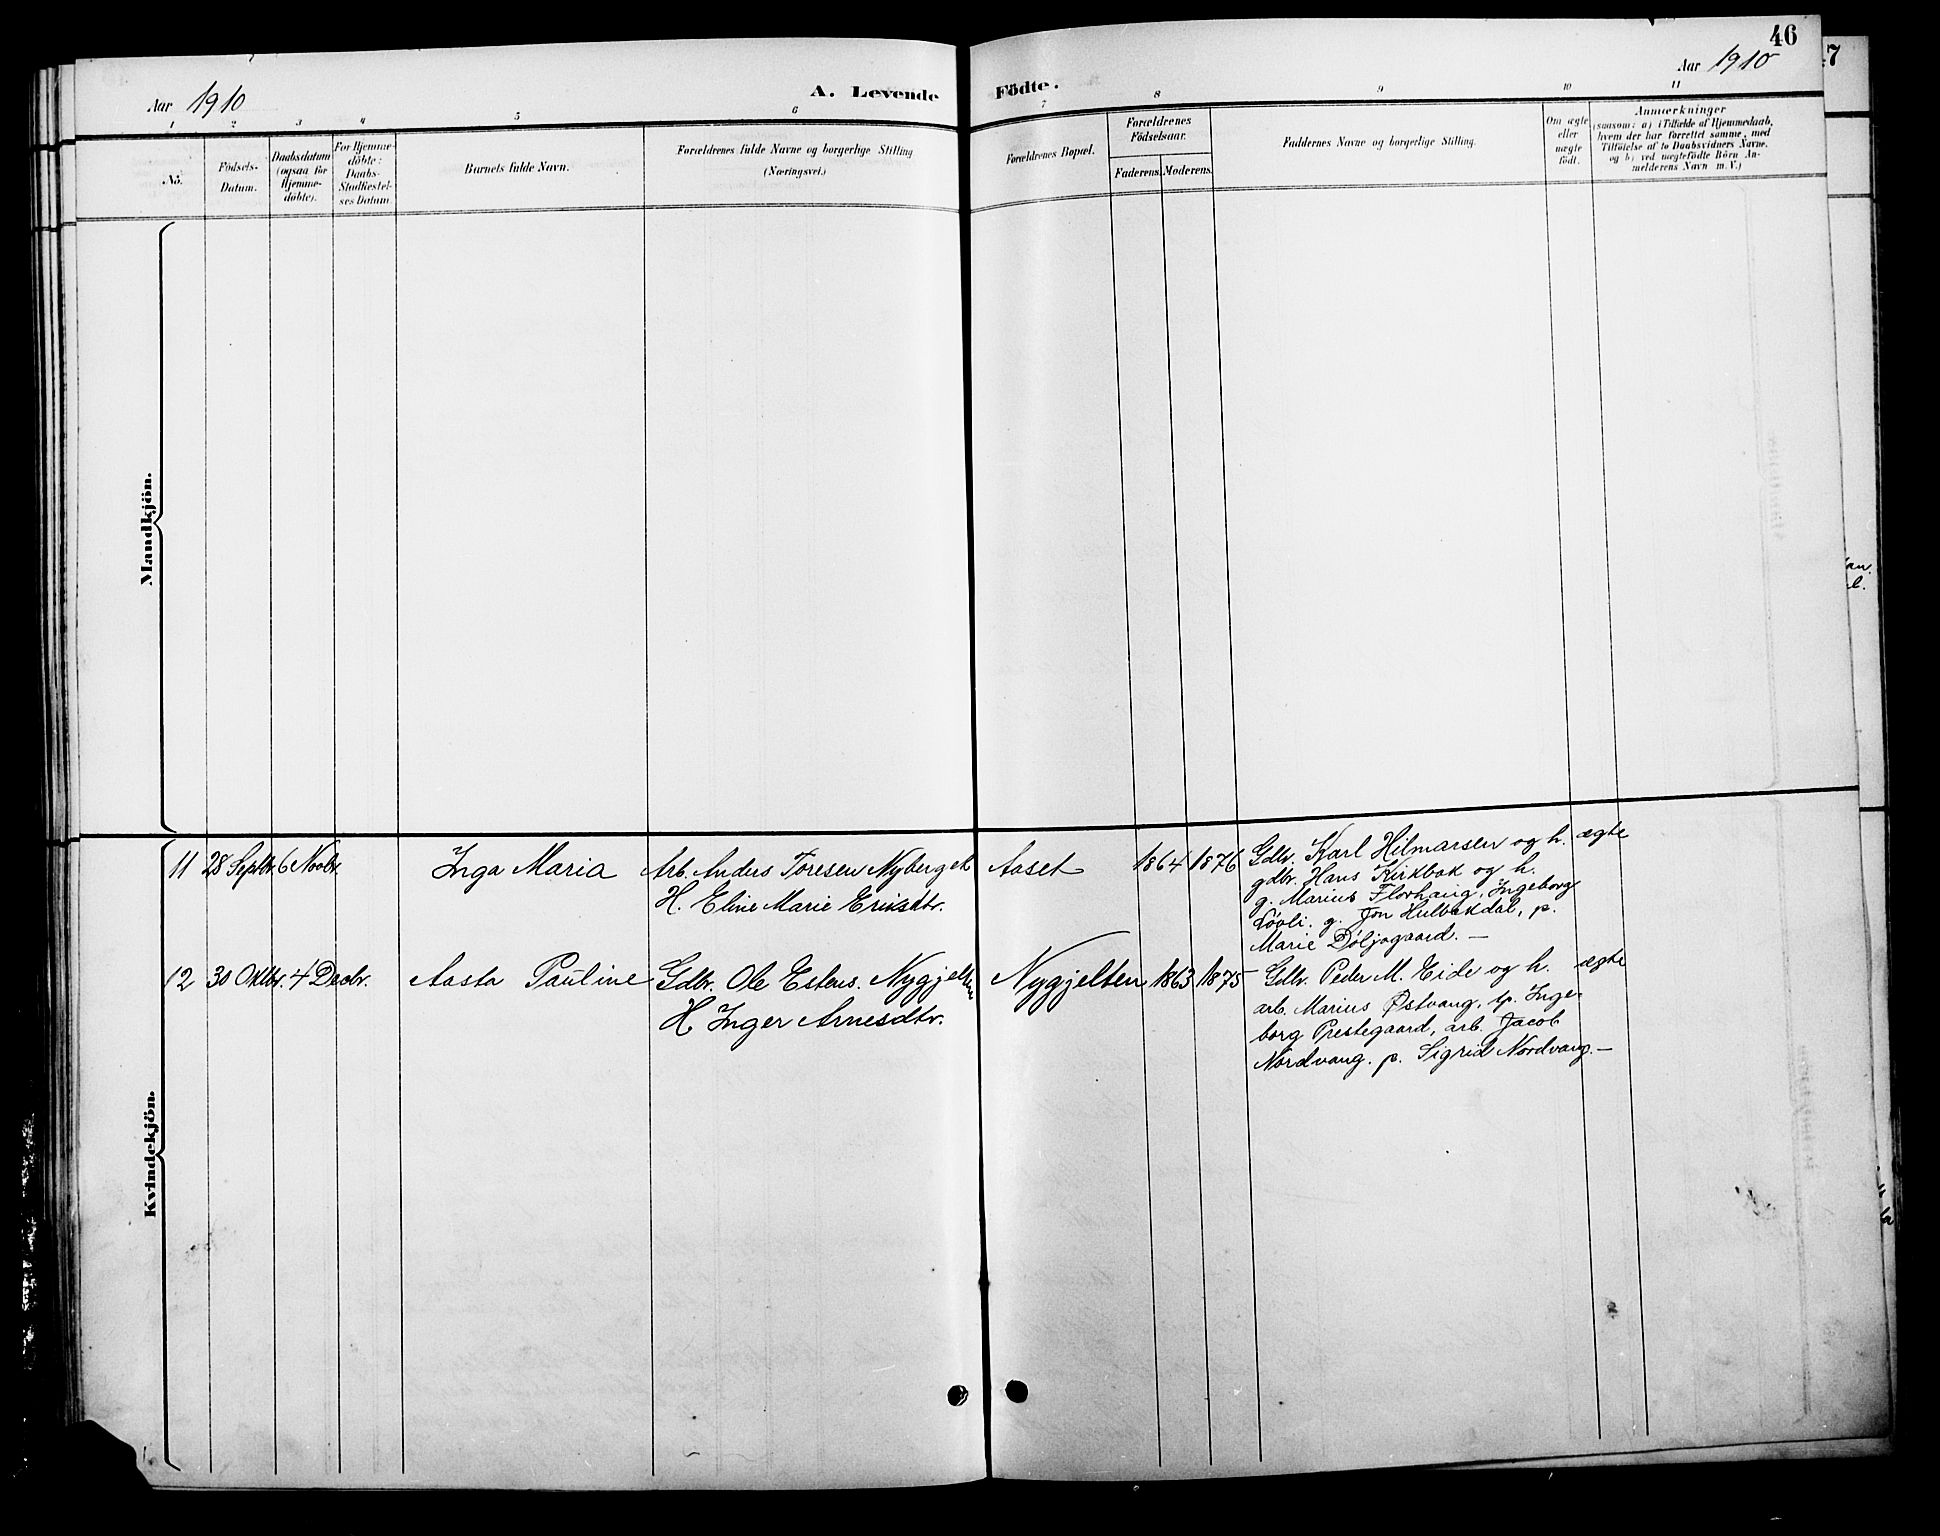 46
Aar 1910
A. Levende
Födte.
Aar 1910
1 2 3 4 5 6 7 8 9 10 11
No.
Födsels-
Datum.
Daabsdatum
(ogsaa for
Hjemme-
döbte).
For Hjemme-
döbte:
Daabs-
Stadfæstel-
ses Datum.
Barnets fulde Navn.
Forældrenes fulde Navne og borgerlige Stilling
(Næringsvei.)
Forældrenes Bopæl.
Forældrenes
Födselsaar.
Faderens. Moderens.
Faddernes Navne og borgerlige Stilling.
Om ægte
eller
uægte
födt.
Anmærkninger
(saasom: a) i Tilfælde af Hjemmedaab,
hvem der har forrettet samme, med
Tilföielse af to Daabsvidners Navne,
og b) ved uægtefödte Börn An-
melderens Navn m. V.)
Mandkjön.
Kvindekjön.
11 28 Septbr. 6 Novbr. Inga Maria
Arb. Anders Toresen Nyberget
H. Eline Marie Eriksdtr.
Aaset 1864 1876
Gdbr. Karl Hilmarsen og h.
gdbr. Hans Kirkbak og h.
g. Marius Florhaug, Ingeborg
Lövli. g. Jon Hulbækdal, p.
Marie Döljogaard. —
ægte
12 30 Oktbr. 4 Decbr. Aasta Pauline
Gdbr. Ole Estens. Nygjelten
H Inger Arnesdtr.
Nygjelten 1863 1875
Gdbr. Peder M. Eide og h.
arb. Marius Østvang, tp. Inge-
borg Prestegaard, arb. Jacob
Nordvang. p. Sigrid Nordvang. —
ægte